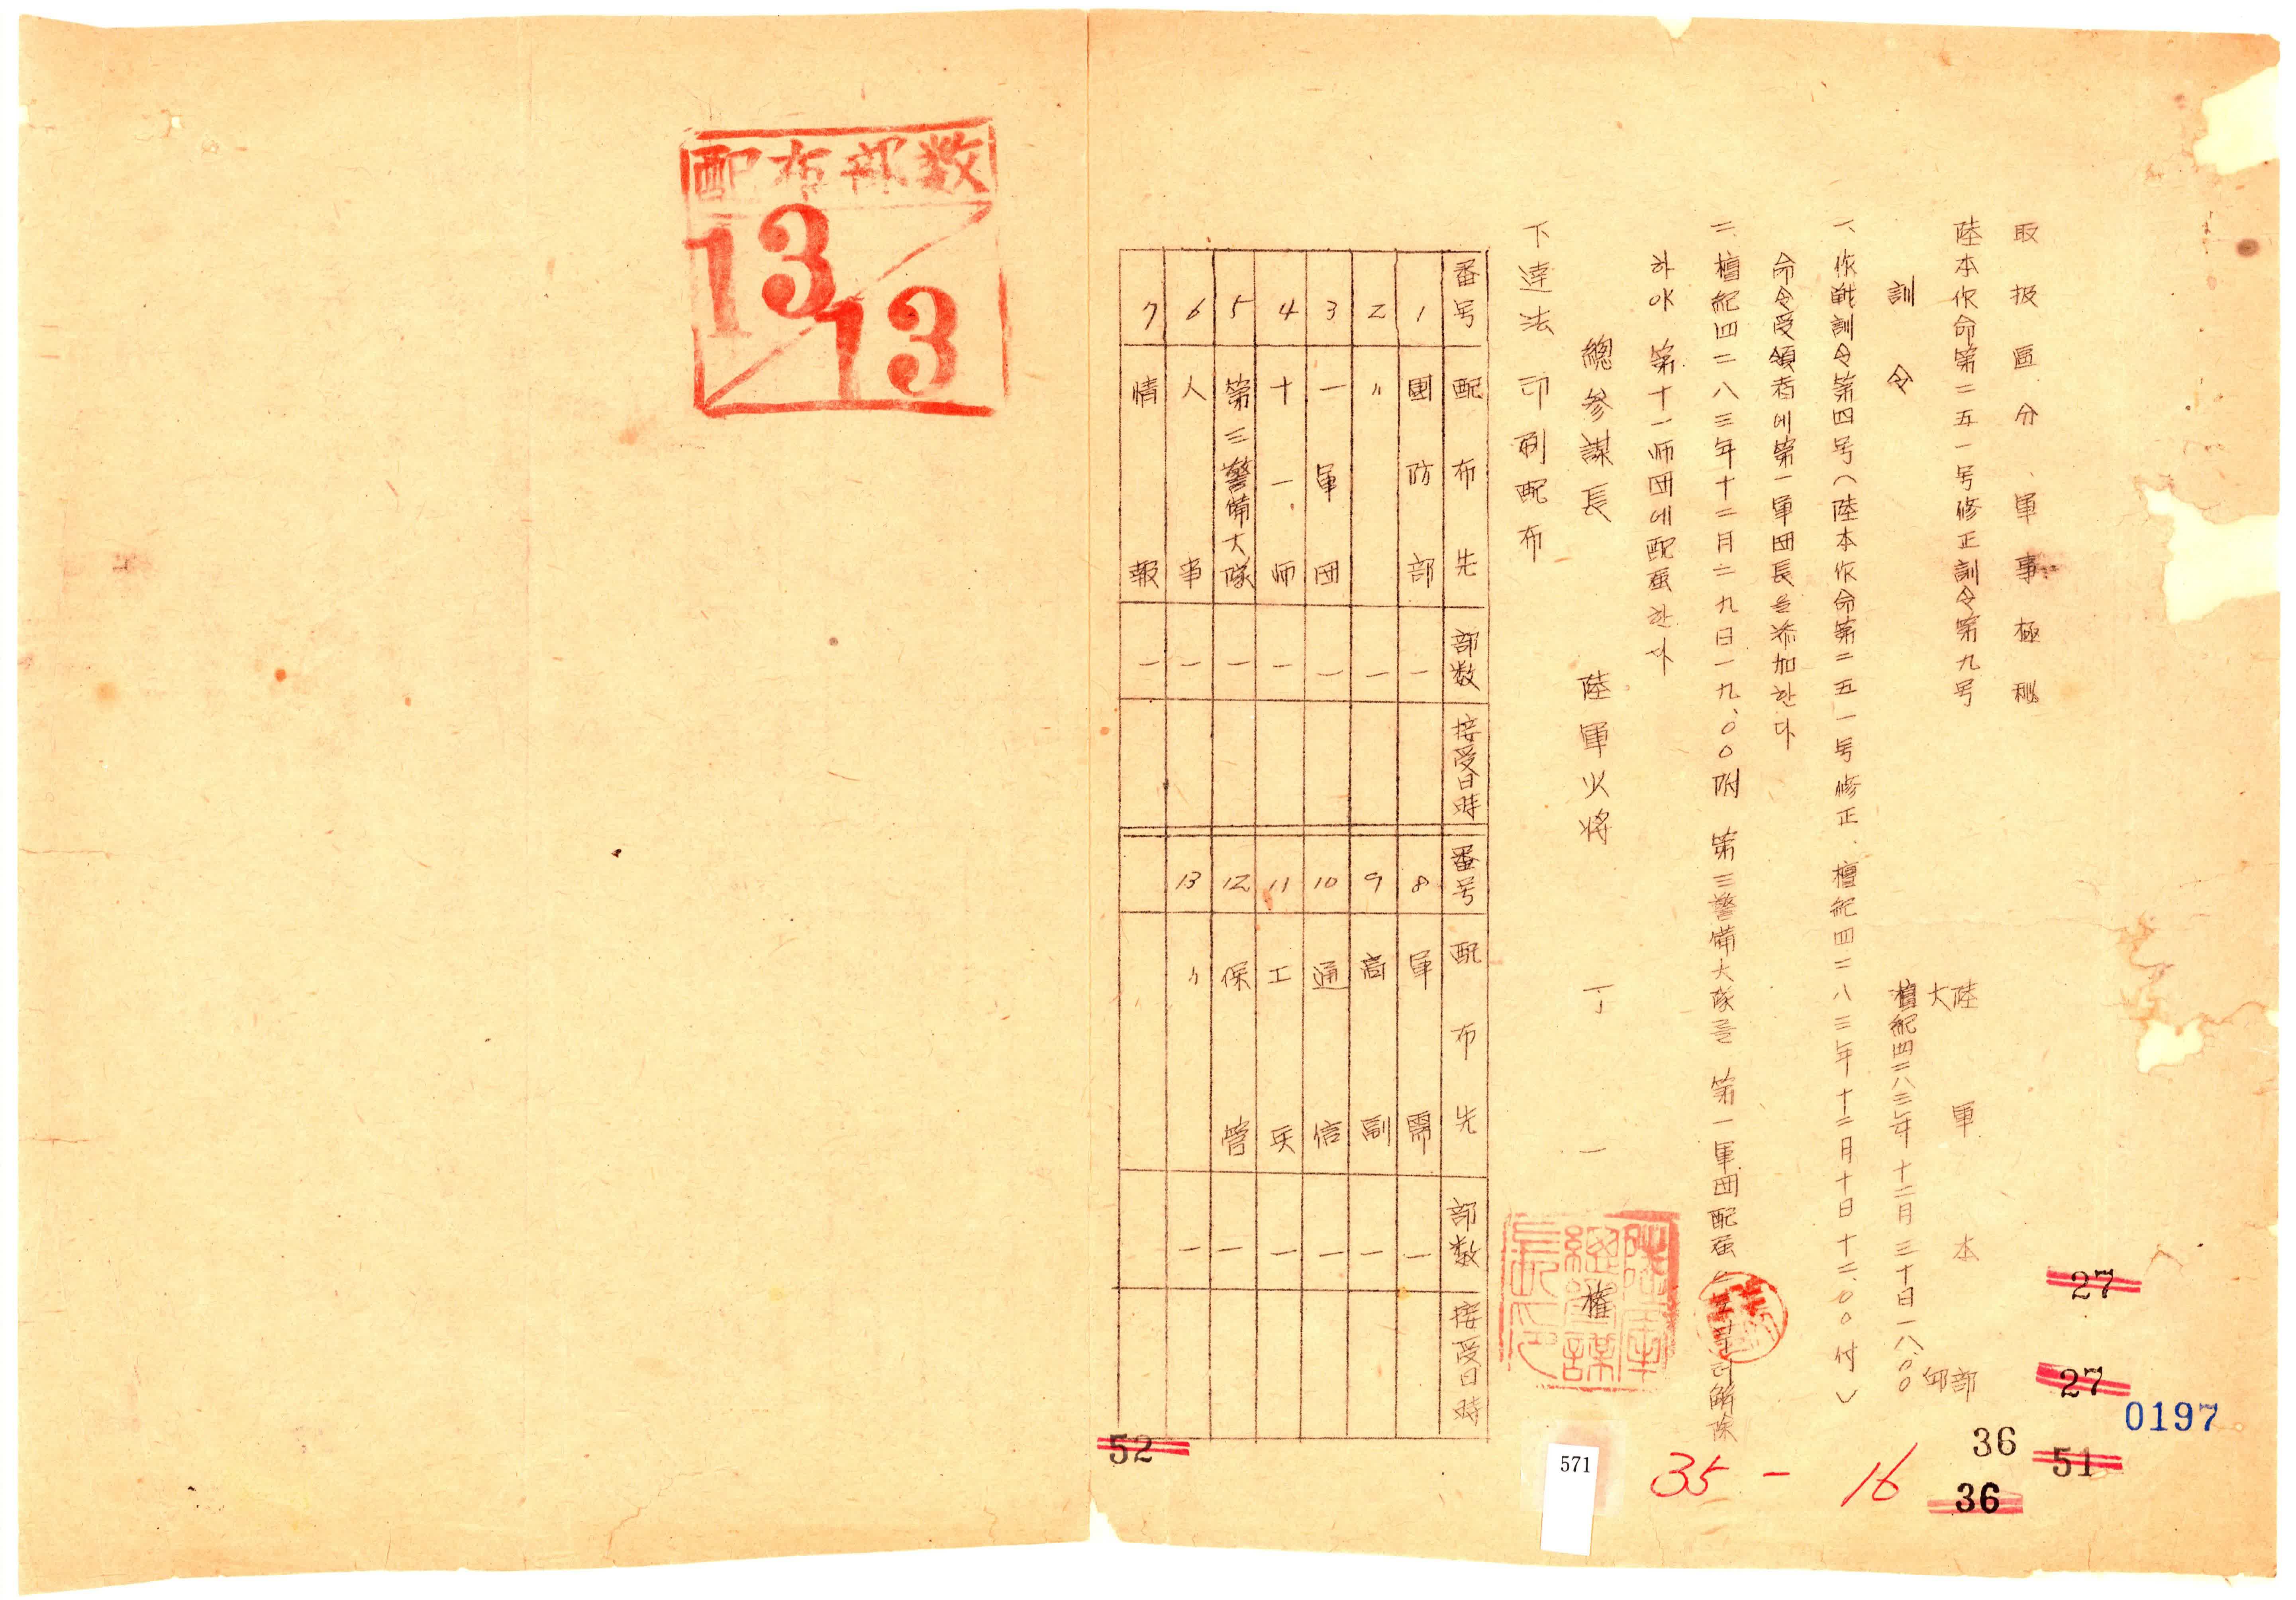 取扱區分、軍事極秘
陸本作命第二五一号修正訓令第九号
陸軍本部
大邱
訓令
檀紀四二八三年十二月三十日一八.〇〇
一、作戰訓令第四号(陸本作命第二五一号修正.檀紀四二八三年十二月十日十二.〇〇付)
命令受領者에第一軍団長을添加한다
二、檀紀四二八三年十二月二九日一九、〇〇附 第三警備大隊를 第一軍団配屬解除
하야 第十一师団에配屬한다
總參謀長 陸軍少将 丁一權
陸軍總參謀長印
下達法 印刷配布
番号 配布先 部数 接受日時 番号 配布先 部数 接受日時
1 國防部 一 8 軍需 一
2 〃 一 9 高副 一
3 一軍団 一 10 通信 一
4 十一师 一 11 工兵 一
5 第三警備大隊 一 12 保管 一
6 人事 一 13 〃 一
7 情報 一
配布部数
13/13
27
27
0197
36
51
36
35-16
571
52